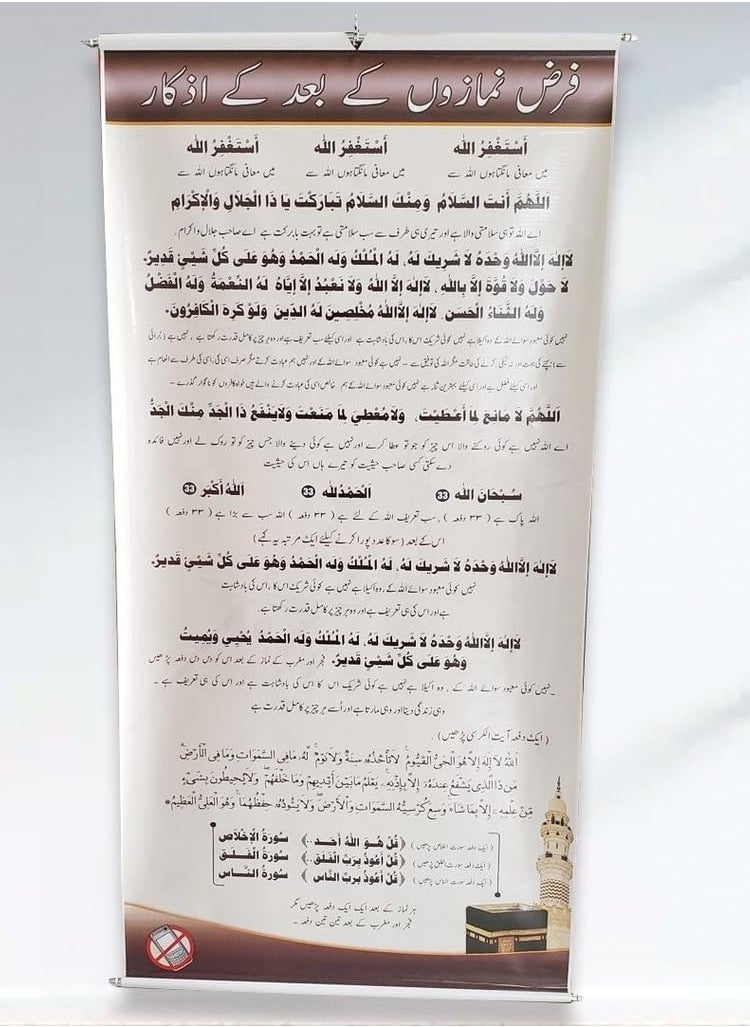 فرض نمازوں کے بعد کے اذکار
أَسْتَغْفِرُ اللّٰه أَسْتَغْفِرُ اللّٰه أَسْتَغْفِرُ اللّٰه
میں معافی مانگتا ہوں اللہ سے میں معافی مانگتا ہوں اللہ سے میں معافی مانگتا ہوں اللہ سے
اَللّٰهُمَّ أَنتَ السَّلاَمُ وَمِنْكَ السَّلاَمُ تَبَارَكْتَ يَا ذَا الْجَلاَلِ وَالْإِكْرَامِ
اے اللہ تو ہی سلامتی والا ہے اور تیری ہی طرف سے سب سلامتی ہے تو بہت بابرکت ہے اے صاحب جلال و اکرام۔
لاَإِلٰهَ إِلاَّاللّٰهُ وَحْدَهُ لاَ شَرِيكَ لَهُ، لَهُ الْمُلْكُ وَلَه الْحَمْدُ وَهُوَ عَلَى كُلِّ شَيْئٍ قَدِيرٌ۔
لاَ حَوْلَ وَلاَ قُوَّةَ إِلاَّ بِاللّٰهِ، لاَإِلٰهَ إِلاَّ اللّٰهُ وَلاَ نَعْبُدُ إِلاَّ إِيَّاهُ لَهُ النِّعْمَةُ وَلَهُ الْفَضْلُ
وَلَهُ الثَّنَاءُ الْحَسَنِ، لاَإِلٰهَ إِلاَّاللّٰهُ مُخْلِصِينَ لَهُ الدِّينَ وَلَوْ كَرِهَ الْكَافِرُونَ۔
نہیں کوئی معبود سوائے اللہ کے وہ اکیلا ہے نہیں کوئی شریک اس کا، اس کی بادشاہت ہے اور اسی کیلئے سب تعریف ہے اور وہ ہر چیز پر کامل قدرت رکھتا ہے، نہیں ہے (برائی
سے) بچنے کی ہمت اور نہ نیکی کرنے کی طاقت مگر اللہ کی توفیق سے۔ نہیں ہے کوئی معبود سوائے اللہ کے اور نہیں ہم عبادت کرتے مگر صرف اسی کی، اسی کی طرف سے انعام ہے
اور اسی کیلئے فضل ہے اور اسی کیلئے بہترین ثناء ہے نہیں کوئی معبود سوائے اللہ کے ہم خالص اسی کی عبادت کرنے والے ہیں خواہ کافروں کو ناگوار گذرے۔
اَللّٰهُمَّ لاَ مَانِعَ لِمَا أَعْطَيْتَ، وَلاَمُعْطِيَ لِمَا مَنَعْتَ وَلاَيَنْفَعُ ذَا الْجَدِّ مِنْكَ الْجَدُّ
اے اللہ نہیں ہے کوئی روکنے والا اس چیز کو جو تو عطا کرے اور نہیں ہے کوئی دینے والا جس چیز کو تو روک لے اور نہیں فائدہ
دے سکتی کسی صاحب حیثیت کو تیرے ہاں اس کی حیثیت
سُبْحَانَ اللّٰه 33 اَلْحَمْدُلِلّٰه 33 اَللّٰهُ أَكْبَر 33
اللہ پاک ہے (۳۳ دفعہ)، سب تعریف اللہ کے لئے ہے (۳۳ دفعہ) اللہ سب سے بڑا ہے (۳۳ دفعہ)
اس کے بعد (سو کا عدد پورا کرنے کیلئے ایک مرتبہ یہ کہے)
لاَإِلٰهَ إِلاَّاللّٰهُ وَحْدَهُ لاَ شَرِيكَ لَهُ، لَهُ الْمُلْكُ وَلَه الْحَمْدُ وَهُوَ عَلَى كُلِّ شَيْئٍ قَدِيرٌ۔
نہیں کوئی معبود سوائے اللہ کے، وہ اکیلا ہے نہیں ہے کوئی شریک اس کا، اس کی بادشاہت
ہے اور اس کی ہی تعریف ہے اور وہ ہر چیز پر کامل قدرت رکھتا ہے۔
لاَإِلٰهَ إِلاَّاللّٰهُ وَحْدَهُ لاَ شَرِيكَ لَهُ، لَهُ الْمُلْكُ وَلَه الْحَمْدُ يُحْيِي وَيُمِيتُ
وَهُوَ عَلَى كُلِّ شَيْئٍ قَدِيرٌ۔ فجر اور مغرب کے نماز کے بعد اس کو دس دس دفعہ پڑھیں
۔نہیں کوئی معبود سوائے اللہ کے، وہ اکیلا ہے نہیں ہے کوئی شریک اس کا اس کی بادشاہت ہے اور اس کی ہی تعریف ہے۔
وہی زندگی دیتا اور وہی مارتا ہے اور اُسے ہر چیز پر کامل قدرت ہے
(ایک دفعہ آیت الکرسی پڑھیں)۔
اَللّٰهُ لَاۤ اِلٰهَ اِلَّا هُوَ الْحَيُّ الْقَيُّوْمُ ۚ لَا تَاْخُذُهٗ سِنَةٌ وَّلَا نَوْمٌ ؕ لَهٗ مَا فِي السَّمٰوٰتِ وَمَا فِي الْاَرْضِ ؕ
مَنْ ذَا الَّذِيْ يَشْفَعُ عِنْدَهٗۤ اِلَّا بِاِذْنِهٖ ؕ يَعْلَمُ مَا بَيْنَ اَيْدِيْهِمْ وَمَا خَلْفَهُمْ ۚ وَلَا يُحِيْطُوْنَ بِشَيْءٍ
مِّنْ عِلْمِهٖۤ اِلَّا بِمَا شَآءَ ۚ وَسِعَ كُرْسِيُّهُ السَّمٰوٰتِ وَالْاَرْضَ ۚ وَلَا يَـُٔوْدُهٗ حِفْظُهُمَا ۚ وَهُوَ الْعَلِيُّ الْعَظِيْمُ
(ایک دفعہ سورت اخلاص پڑھیں) ﴿قُلْ هُوَ اللّٰهُ أَحَد..﴾ سُورَةُ الْإِخْلاَص
(ایک دفعہ سورت الفلق پڑھیں) ﴿قُلْ أَعُوذُ بِرَبِّ الْفَلَق..﴾ سُورَةُ الْفَلَق
(ایک دفعہ سورت الناس پڑھیں) ﴿قُلْ أَعُوذُ بِرَبِّ النَّاس﴾ سُورَةُ النَّاس
ہر نماز کے بعد ایک ایک دفعہ پڑھیں مگر
فجر اور مغرب کے بعد تین تین دفعہ۔